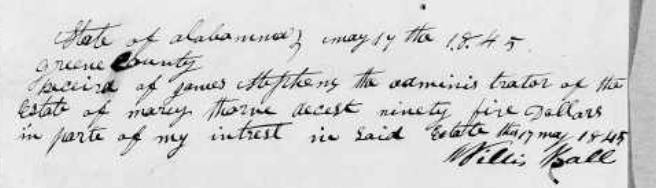 State of alabamma } may 17 the 1845
greene County
Receivd of james Stephens the adminis trator of the
Estate of marcy thorne decest ninety five Dollars
in parte of my intrest in said Estate this 17 may 1845
Willis Ball